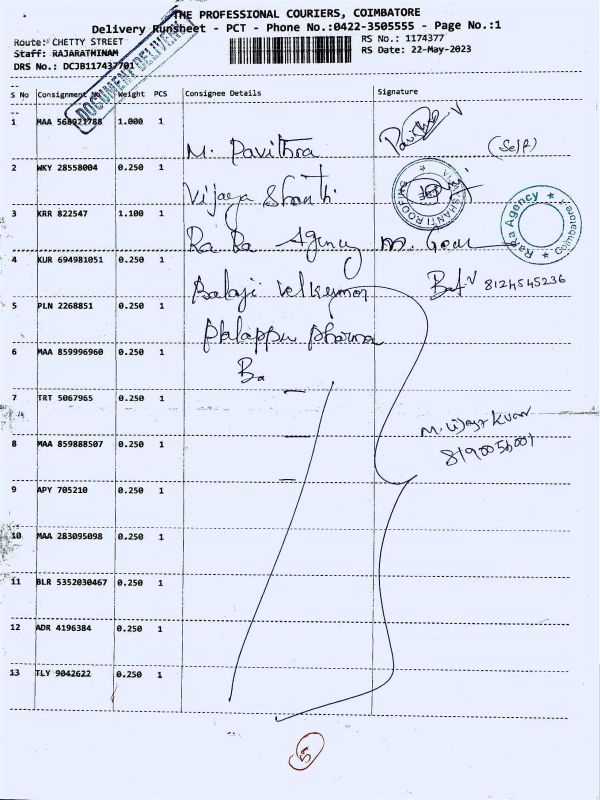 THE PROFESSIONAL COURIERS, COIMBATORE
Delivery Runsheet - PCT - Phone No.:0422-3505555 - Page No.:1
Route: CHETTY STREET
RS No.: 1174377
Staff: RAJARATHINAM
RS Date: 22-May-2023
DRS No.: DCJB117437701
DOCUMENT DELIVERY
S No Consignment No Weight PCS Consignee Details Signature
1 MAA 568921788 1.000 1 M. Pavithra Pavithra (Self)
2 WKY 28558004 0.250 1 Vijaya Shanthi
SHANTI ROOFING
3 KRR 822547 1.100 1 Ra Ra Agency
Ra Ra Agency ★ Coimbatore ★
4 KUR 694981051 0.250 1 Balaji Velkumar 8124545236
5 PLN 2268851 0.250 1 Pharma
6 MAA 859996960 0.250 1 Ba
7 TRT 5067965 0.250 1
8 MAA 859888507 0.250 1
9 APY 705210 0.250 1
10 MAA 283095098 0.250 1
11 BLR 5352030467 0.250 1
12 ADR 4196384 0.250 1
13 TLY 9042622 0.250 1